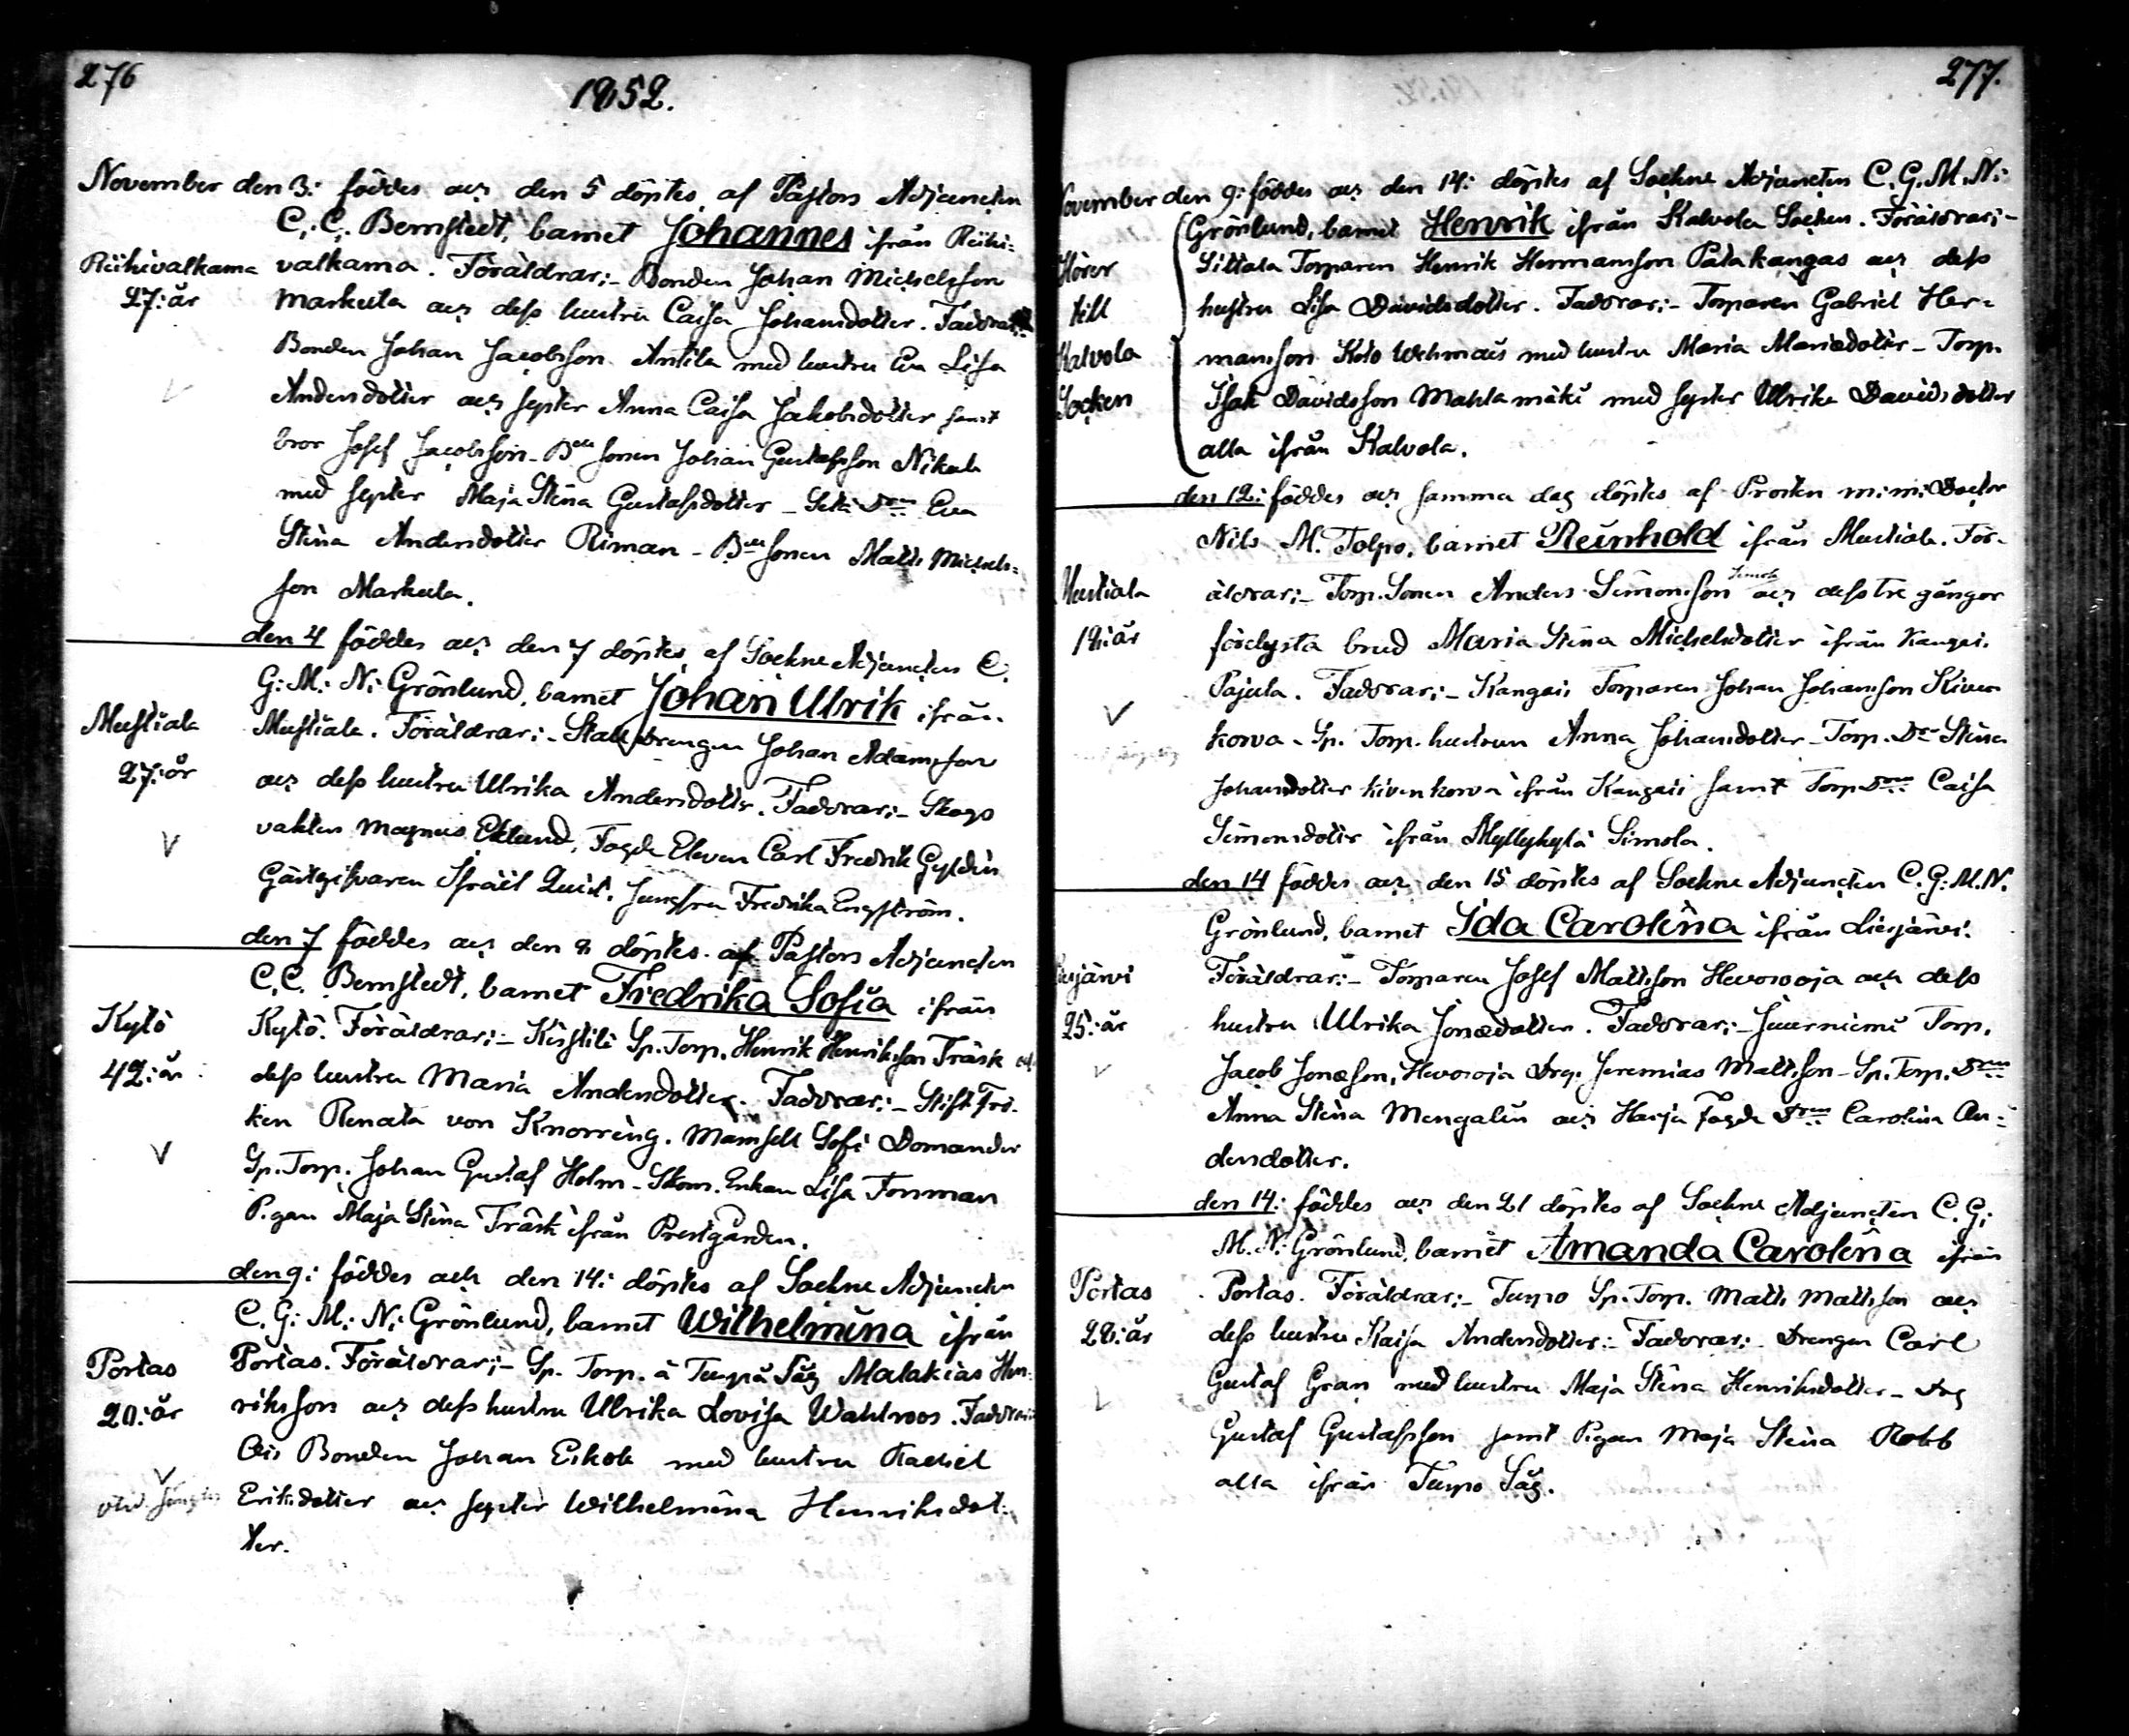 276
1852.
November den 3: föddes och den 5 döptes af Pastors Adjuncten
C. C. Bernstedt, barnet Johannes ifrån Riihi-
Riihivalkama valkama. Föräldrar:- Bonden Johan Michelsson
27: år Markula och dess hustru Caisa Johansdotter. Faddrar:
Bonden Johan Jacobsson Antila med hustru Eva Lisa
Andersdotter och syster Anna Caisa Jakobsdotter samt
bror Josef Jacobsson - Bde sonen Johan Gustafsson Nikula
med syster Maja Stina Gustafsdotter - Eva
Stina Andersdotter Riman - Bde sonen Matts Michels-
son Markula.
den 4 föddes och den 7 döptes af Sockne Adjuncten C.
G: M: N: Grönlund, barnet Johan Ulrik ifrån
Mustiala Mustiala. Föräldrar:- Stalldrengen Johan Adamsson
27: år och dess hustru Ulrika Andersdotter. Faddrar:- Skogs
vakten Magnus Eklund, Fogde Eleven Carl Fredrik Gyldén
Gästgifvaren Israël Quist, Jungfru Fredrika Engström.
den 7 föddes och den 8 döptes af Pastors Adjuncten
C. C. Bernstedt, barnet Fredrika Sofia ifrån
Kylö Kylö. Föräldrar:- Kistilä Sp. Torp. Henrik Henriksson Träsk och
42: år dess hustru Maria Andersdotter. Faddrar:- Stift Frö-
ken Renata von Knorring. Mamsell Sofi Domander
Sp. Torp. Johan Gustaf Holm - Skom. Enkan Lisa Forsman
Pigan Maja Stina Träsk ifrån Prestgården.
den 9: föddes och den 14: döptes af Sockne Adjuncten
C. G: M: N: Grönlund, barnet Wilhelmina ifrån
Portas Portas. Föräldrar:- Sp. Torp. å Turpo Såg Malakias Hen-
20: år riksson och dess hustru Ulrika Lovisa Wahlroos. Faddrar:
Bonden Johan Eskola med hustru Rachel
Eriksdotter och syster Wilhelmina Henriksdot-
ter.
277.
November den 9: föddes och den 14: döptes af Sockne Adjuncten C. G. M. N:
Grönlund, barnet Henrik ifrån Kalvola Socken. Föräldrar:-
Hörer Sittala Torparen Henrik Hermansson Patakangas och dess
till hustru Lisa Davidsdotter. Faddrar:- Torparen Gabriel Her-
Kalvola mansson Koto Uckmais med hustru Maria Mariædotter - Torp.
Socken Isak Davidsson Mahlamäki med syster Ulrika Davidsdotter
alla ifrån Kalvola.
den 12: föddes och samma dag döptes af Prosten m: m: Doctor
Nils M. Tolpo, barnet Reinhold ifrån Mustiala. För-
Simola
Mustiala äldrar:- Torp. Sonen Anders Simonsson och dess tre gånger
18: år förelysta brud Maria Stina Michelsdotter ifrån Kangais.
Pajula. Faddrar:- Kangais Torparen Johan Johansson Kiven
korva - Sp. Torp. hustrun Anna Johansdotter - Torp. Dr Stina
Johansdotter Kivenkorva ifrån Kangais samt Torp Caisa
Simonsdotter ifrån Myllykylä Simola.
den 14 föddes och den 15 döptes af Sockne Adjuncten C. G: M. N.
Grönlund, barnet Ida Carolina ifrån Liesjärvi.
Liesjärvi Föräldrar:- Torparen Josef Mattsson Hevosoja och dess
25: år hustru Ulrika Jonædotter. Faddrar:- Suurniemi Torp.
Jacob Jonæson, Hevosoja Dreg. Jeremias Mattsson - Sp. Torp.
Anna Stina Mengalin och Harja Fogde Carolina An-
dersdotter.
den 14: föddes och den 21 döptes af Sockne Adjuncten C. G:
M. N: Grönlund, barnet Amanda Carolina ifrån
Portas Portas. Föräldrar:- Turpo Sp. Torp. Matts Mattsson och
28: år dess hustru Kaisa Andersdotter:- Faddrar:- Drengen Carl
Gustaf Gran med hustru Maja Stina Henriksdotter - Dreg
Gustaf Gustafsson samt Pigan Maja Stina Robb
alla ifrån Turpo Såg.